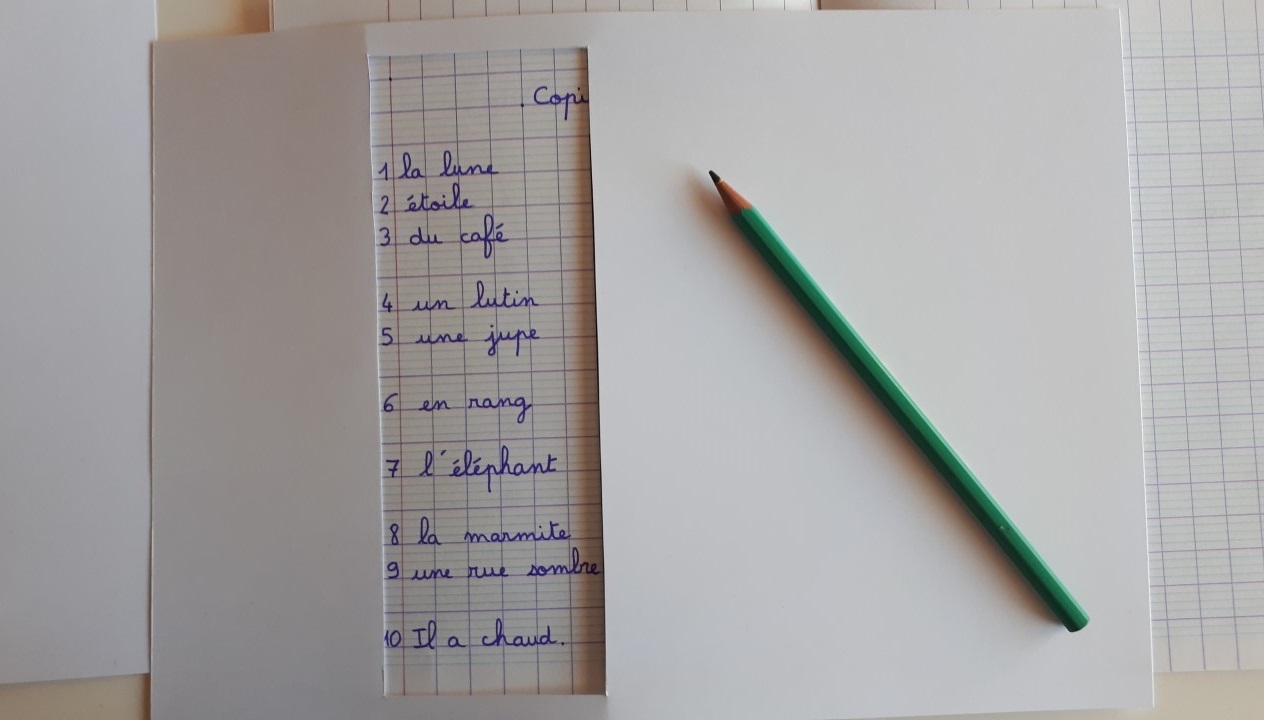 Copi
1 la lune
2 étoile
3 du café
4 un lutin
5 une jupe
6 en rang
7 l'éléphant
8 la marmite
9 une rue sombre
10 Il a chaud.